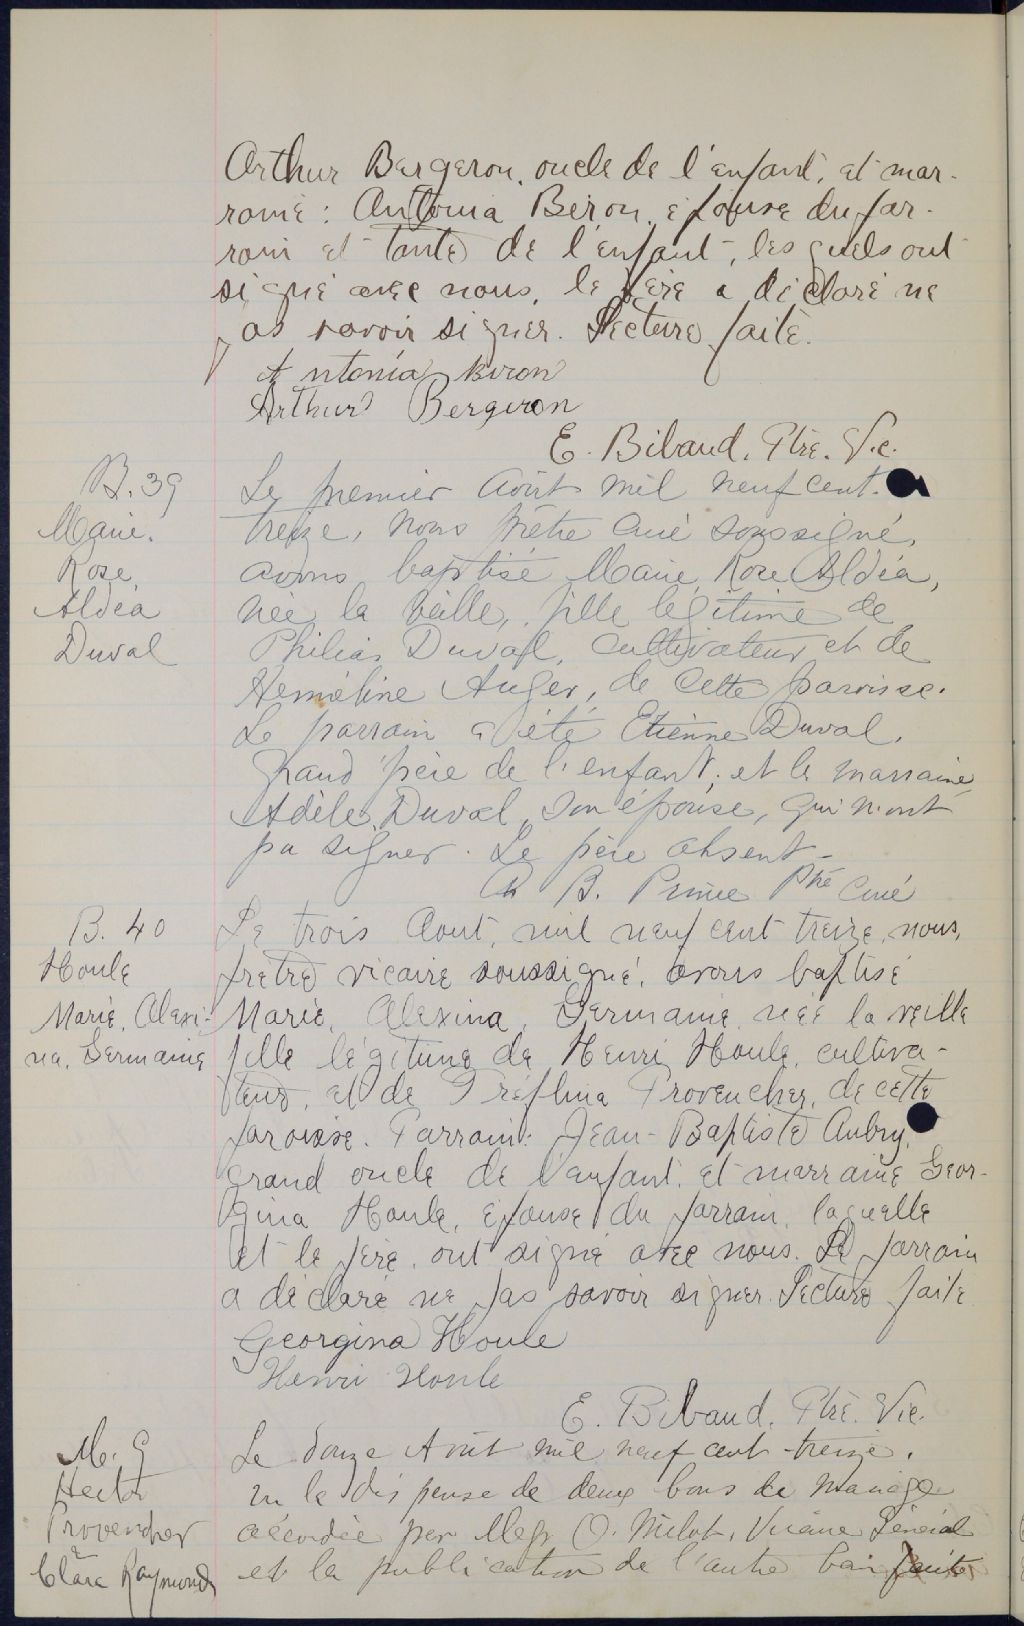 Arthur Bergeron, oncle de l'enfant, et mar-
raine: Antonia Béron, épouse du par-
rain et tante de l'enfant, lesquels ont
signé avec nous, le père a déclaré ne
pas savoir signer. Lecture faite.
Antonia Biron
Arthur Bergeron
E. Bibaud, Ptre. Vic.
B. 39
Marie,
Rose,
Aldéa
Duval
Le premier Août mil neuf cent-
treize, nous prêtre curé soussigné,
avons baptisé Marie, Rose Aldéa,
née la veille, fille légitime de
Philias Duval, cultivateur et de
Herméline Auger, de cette paroisse.
Le parrain a été Etienne Duval,
grand père de l'enfant, et la marraine
Adèle Duval, son épouse, qui n'ont
pu signer. Le père absent-
B. Prince Ptre Curé
B. 40
Houle
Marie, Alexi-
na, Germaine
Le trois Aout, mil neuf cent treize, nous,
prêtre vicaire soussigné, avons baptisé
Marie, Alexina, Germaine, née la veille
fille légitime de Henri Houle, cultiva-
teur, et de Tréflina Provencher, de cette
paroisse. Parrain: Jean-Baptiste Aubry,
grand oncle de l'enfant, et marraine Geor-
gina Houle, épouse du parrain, laquelle
et le père, ont signé avec nous. Le parrain
a déclaré ne pas savoir signer. Lecture faite
Georgina Houle
Henri Houle
E. Bibaud, Ptre. Vic.
M. 9
Hector
Provencher
&
Clara Raymond
Le douze Août mil neuf cent-treize,
vu la dispense de deux bans de mariage
accordée par Mgr O. Milot, Vicaire Général
et la publication de l'autre ban faite